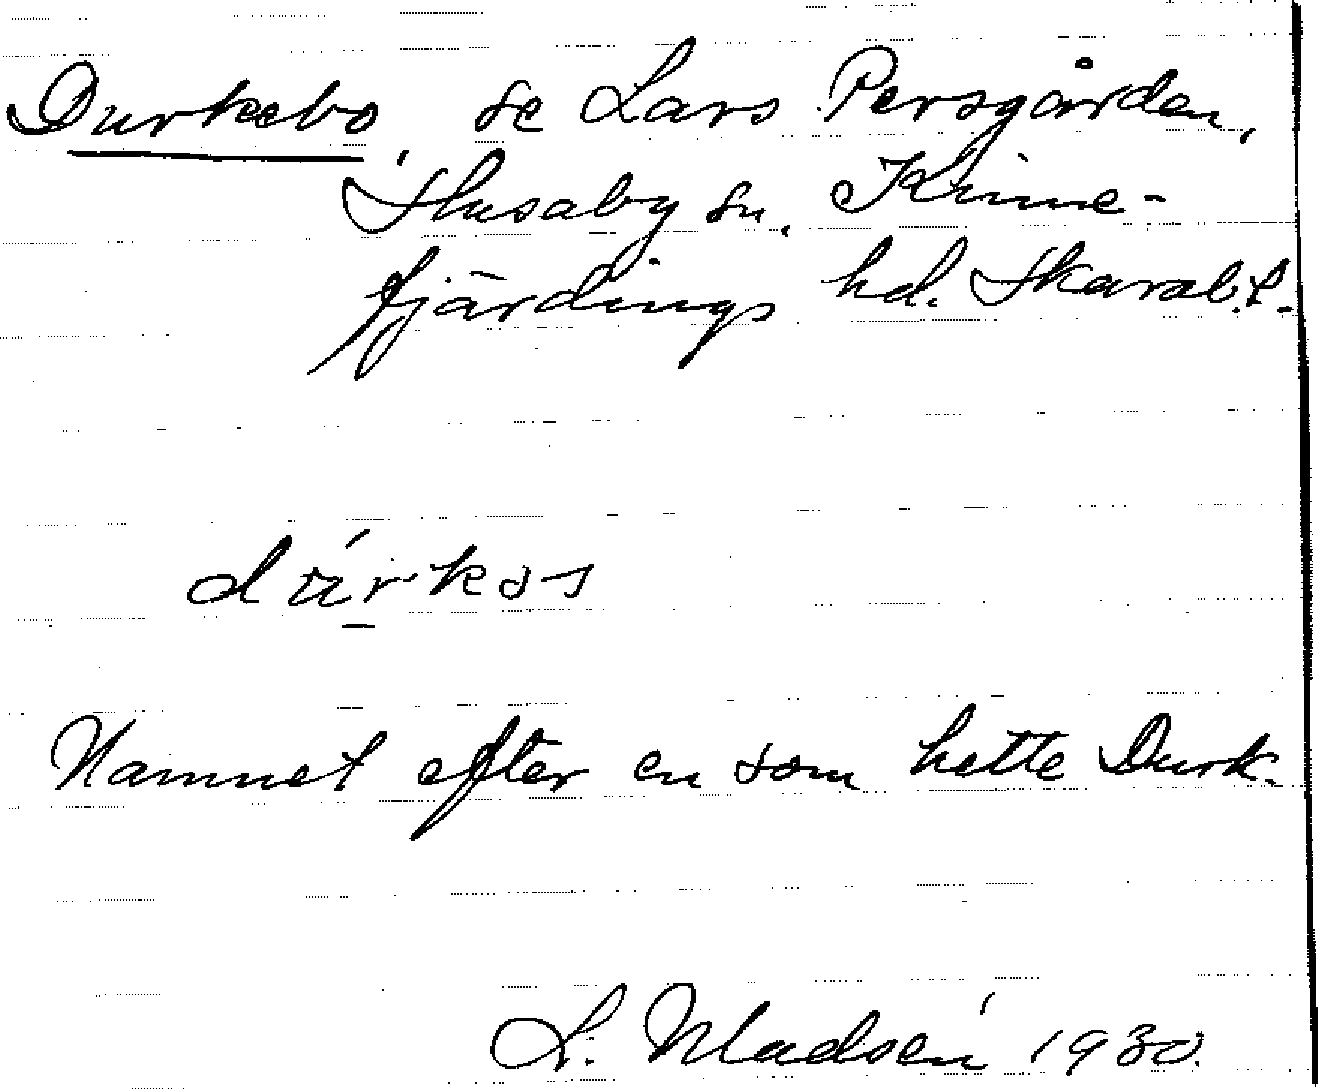 Durkebo, se Lars Persgården,
Husaby sn, Kinne-
fjärdings hd. Skarab.l.
Namnet efter en som hette Durk.
L. Madsén 1930.